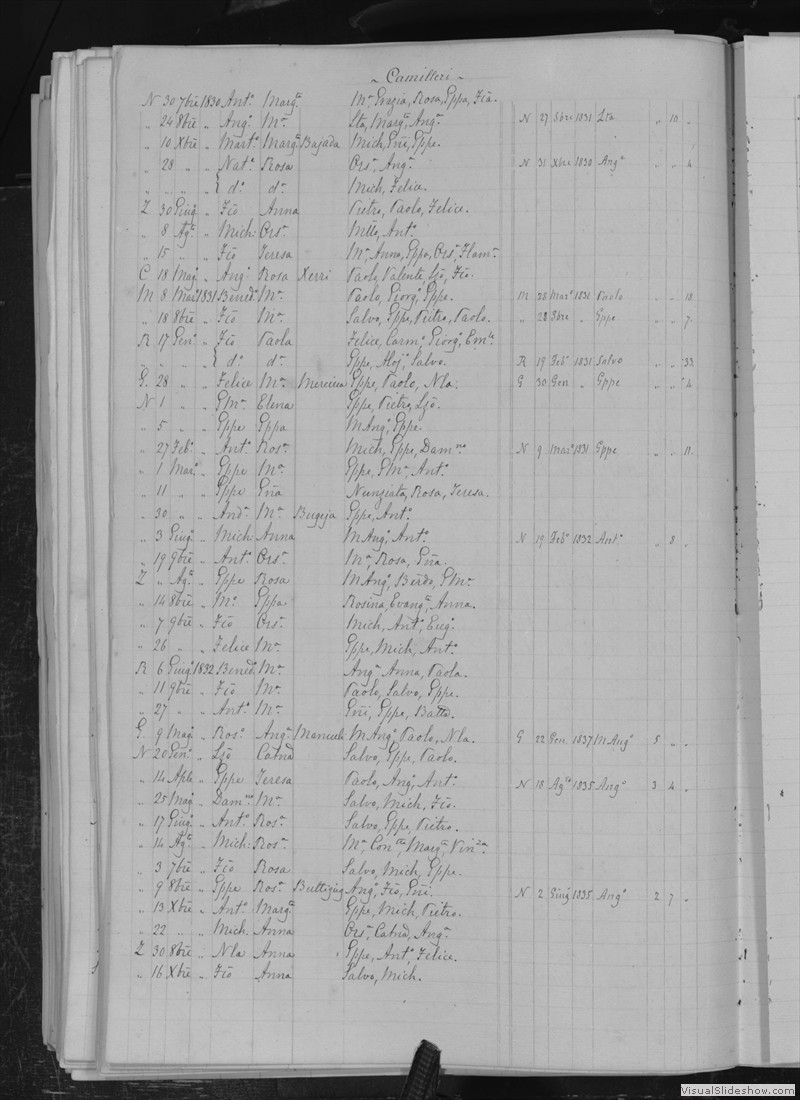 ~ Camilleri ~
N 30 7bre 1830 Ant.º Marg.ª Mª, Grazia, Rosa, Gppa, Fca.
„ 24 8bre „ Ang.º Mª Sta, Marg.ª, Ang.ª N 27 8bre 1831 Sta „ 10 „
„ 10 Xbre „ Mart.º Marg.ª Bajada Mich, Gppe.
„ 28 „ „ Nat.º Rosa Ors.ª, Ang.ª N 31 Xbre 1830 Ang.ª „ „ 4
„ „ „ { d.º d.ª Mich, Felice.
Z 30 Giug „ Fco Anna Pietro, Paolo, Felice.
„ 8 Ag.º „ Mich: Ors.ª Mtteo, Ant.º
„ 15 „ „ Fco Teresa Mª, Anna, Gppa, Ors.ª, Flam.ª
C 18 Mag. „ Ang: Rosa Xerri Paolo, Valente, Lzo, Fco.
M 8 Mar.º 1831 Bened.º Mª Paolo, Giorg.º, Gppe. M 28 Mar.º 1831 Paolo „ „ 18
„ 18 8bre „ Fco Mª Salvo, Gppe, Pietro, Paolo. „ 28 8bre „ Gppe „ „ 7
R 17 Gen.º „ Fco Paola Felice, Carm.º, Giorg.º, Em.le
„ „ „ { d.º d.ª Gppe, Aloj.º, Salvo. R 19 Feb.º 1831 Salvo „ „ 33
G. 28 „ „ Felice Mª Mercieca Gppe, Paolo, Nla. G 30 Gen „ Gppe „ „ 4
N 1 „ „ GMª Elena Gppe, Pietro, Lzo.
„ 5 „ „ Gppe Gppa MAng.º, Gppe.
„ 27 Feb.º „ Ant.º Ros.ª Mich, Gppe, Dam.no N 9 Mar.º 1831 Gppe „ „ 11
„ 1 Mar.º „ Gppe Mª Gppe, GMª, Ant.º
„ 11 „ „ Gppe Nunziata, Rosa, Teresa.
„ 30 „ „ And.ª Mª Bugeja Gppe, Ant.º
„ 3 Giug.º „ Mich Anna MAng.º, Ant.º N 19 Feb.º 1832 Ant.º „ 8 „
„ 19 9bre „ Ant.º Ors.ª Mª, Rosa,
Z „ Ag.º „ Gppe Rosa MAng.º, Berdo, GMª
„ 14 8bre „ Mº Gppa Rosina, Evang.ª, Anna.
„ 7 9bre „ Fco Ors.ª Mich, Ant.º, Eug.º
„ 26 „ „ Felice Mª Gppe, Mich, Ant.º
R 6 Giug.º 1832 Bened.º Mª Ang.ª, Anna, Paola.
„ 11 9bre „ Fco Mª Paolo, Salvo, Gppe.
„ 27 „ „ Ant.º Mª Gppe, Batta.
G. 9 Mag. „ Ros.º Ang.ª Mamuch MAng.º, Paolo, Nla. G 22 Gen. 1837 MAng.º 5 „ „
N 20 Gen.º „ Lzo Catna Salvo, Gppe, Paolo.
„ 14 Aple „ Gppe Teresa Paolo, Ang.º, Ant.º N 18 Ag.to 1835 Ang.º 3 4 „
„ 25 Mag. „ Dam.no Mª Salvo, Mich, Fco.
„ 17 Giug.º „ Ant.º Ros.ª Salvo, Gppe, Pietro.
„ 14 Ag.º „ Mich: Ros.ª Mª, Con.ne, Marg.ª, Vin.za
„ 3 7bre „ Fco Rosa Salvo, Mich, Gppe.
„ 9 8bre „ Gppe Ros.ª Buttigieg Ang.º, Fco, N 2 Giug.º 1835 Ang.º 2 7 „
„ 13 Xbre „ Ant.º Marg.ª Gppe, Mich, Pietro.
„ 22 „ „ Mich. Anna Ors.ª, Catna, Ang.ª
Z 30 8bre „ Nla Anna Gppe, Ant.º, Felice.
„ 16 Xbre „ Fco Anna Salvo, Mich.
VisualSlideshow.com